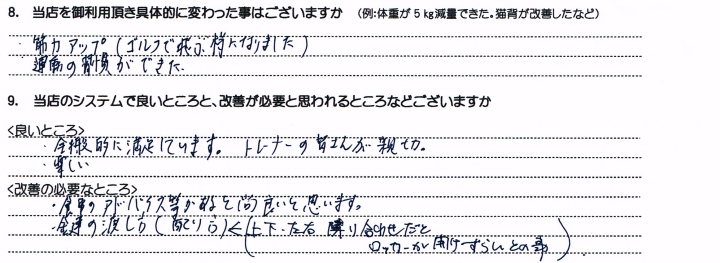 8. 当店を御利用頂き具体的に変わった事はございますか （例:体重が5kg減量できた。猫背が改善したなど）
・筋力アップ（ゴルフで飛ぶ様になりました）
・運動の習慣ができた。
9. 当店のシステムで良いところと、改善が必要と思われるところなどございますか
<良いところ>
・全般的に満足しています。トレーナーの皆さんが親切。
・楽しい
<改善の必要なところ>
・食事のアドバイス等があると尚良いと思います。
の渡し方（配り方）<（上下・左右 隣り合わせだと
ロッカーが開けずらいとの事）